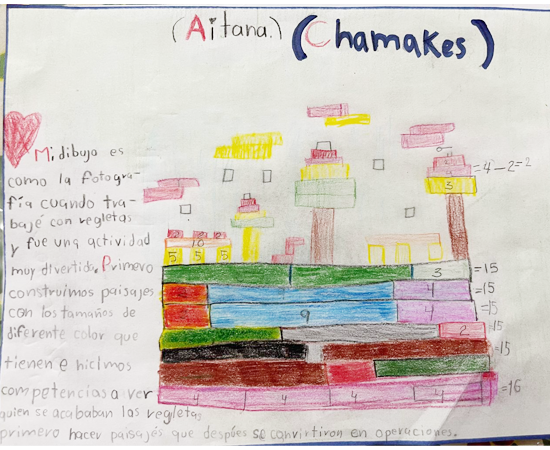 (Aitana.) (Chamakes)
Mi dibujo es
como la fotogra-
fía cuando tra-
bajé con regletas
y fue una actividad
muy divertida. Primero
construimos paisajes
con los tamaños de
diferente color que
tienen e hicimos
competencias a ver
quien se acababan las regletas
primero hacer paisajes que despúes se convirtiron en operaciones.
=4-2=2
3
10
5 5 5
3 =15
4 =15
9 4 =15
2 =15
=15
=15
4 4 4 4 =16